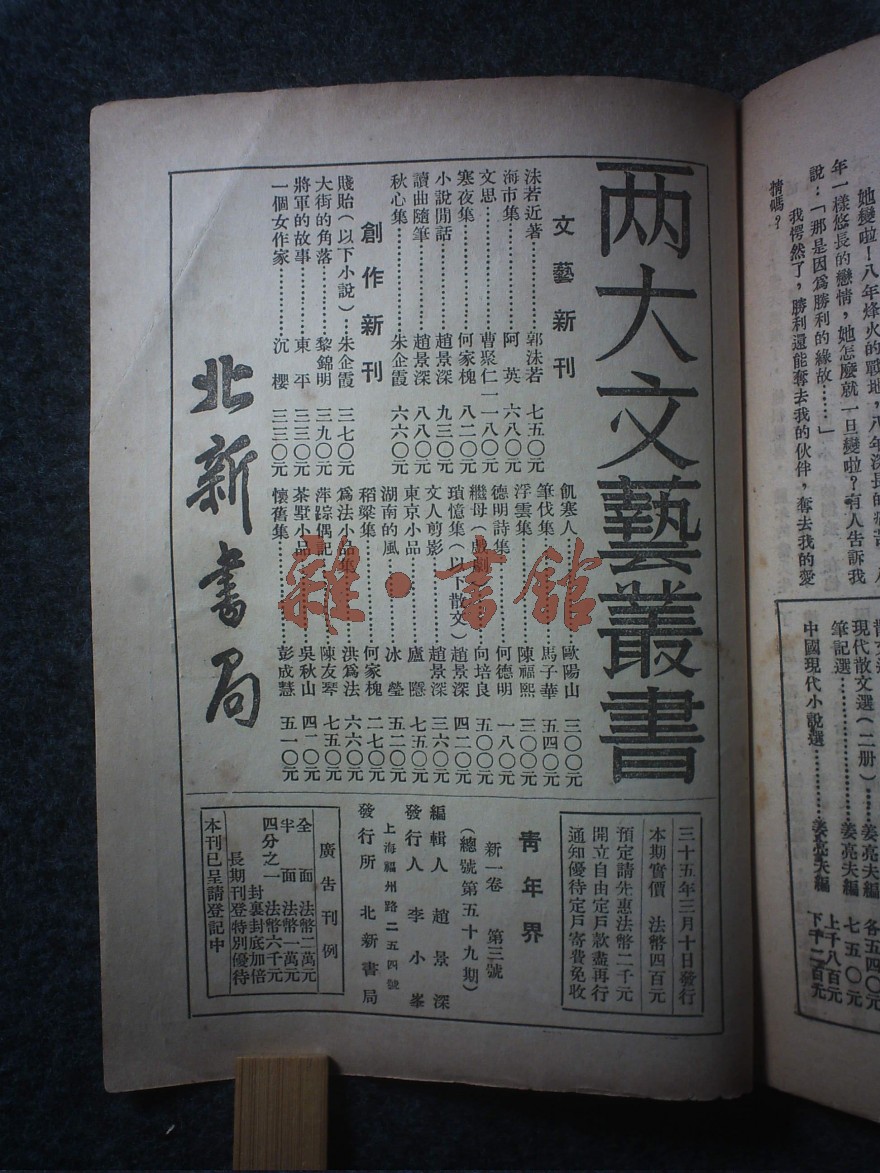 她變啦！八年烽火的戰地，八年深長的
年一樣悠長的戀情，她怎麼就一旦變啦？有人告訴我
說：「那是因爲勝利的緣故……」
我愕然了，勝利還能奪去我的伙伴，奪去我的愛
情嗎？
現代散文選（二册）……姜亮夫編 各五四〇元
筆記選……姜亮夫編 七五〇元
中國現代小說選……姜亮夫編 上千八百元 下千二百元
两大文藝叢書
文藝新刊
沫若近著……郭沫若 七五〇元
海市集……阿英 六八〇元
文思……曹聚仁 一一八〇元
寒夜集……何家槐 八二〇元
小說閒話……趙景深 九三〇元
讀曲隨筆……趙景深 八八〇元
秋心集……朱企霞 六六〇元
創作新刊
賤胎（以下小說）…朱企霞 三七〇元
大街的角落……黎錦明 三九〇元
將軍的故事……東平 三三〇元
一個女作家……沉櫻 三三〇元
飢寒人……歐陽山 三〇〇元
筆伐集……馬子華 五四〇元
浮雲集……陳福熙 三〇〇元
德明詩集……何德明 一八〇元
繼母（戲劇）……向培良 五〇〇元
瑣憶集（以下散文）趙景深 四二〇元
文人剪影……趙景深 三六〇元
東京小品……廬隱 七五〇元
湖南的風……冰瑩 五二〇元
稻粱集……何家槐 二七〇元
爲法小品集……洪爲法 六六〇元
萍踪偶記……陳友琴 七五〇元
茶墅小品……吳秋山 四二〇元
懷舊集……彭成慧 五一〇元
北新書局
三十五年三月十日發行
本期實價 法幣四百元
預定請先惠法幣二千元
開立自由定戶款盡再行
通知優待定戶寄費免收
青年界
新一卷 第三號
（總號第五十九期）
編輯人 趙景深
發行人 李小峯
上海福州路二五四號
發行所 北新書局
廣告刊例
全面 法幣二萬元
半面 法幣一萬元
四分之一 法幣六千元
封裏封底加倍
長期刊登特別優待
本刊已呈請登記中
雜·書館